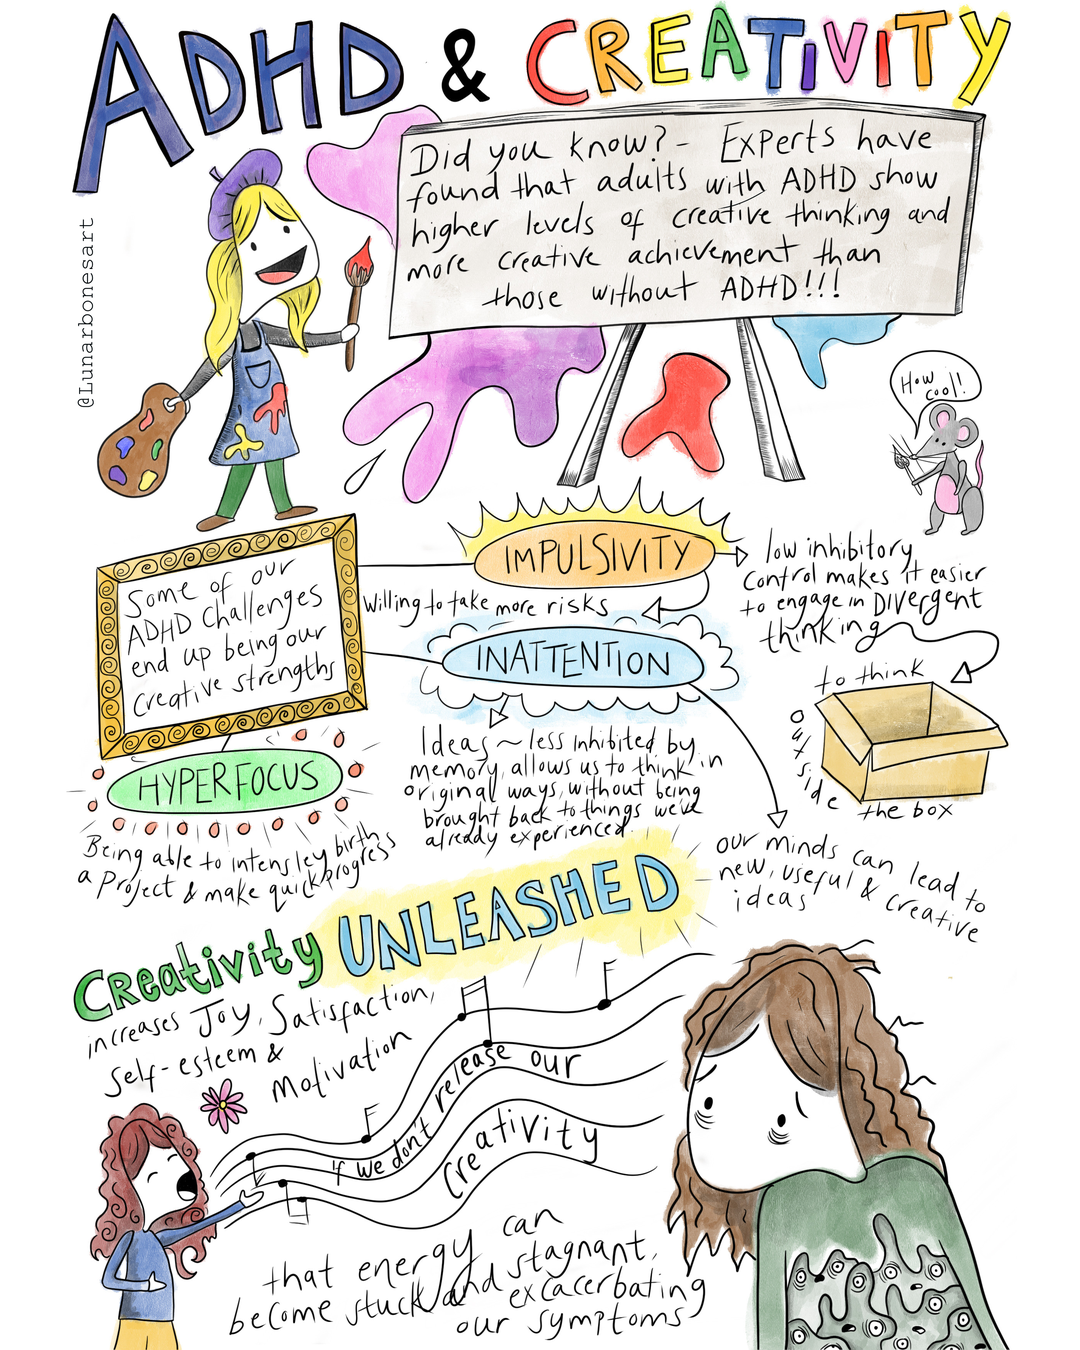 ADHD & CREATIVITY
@Lunarbonesart
Did you know? - Experts have
found that adults with ADHD show
higher levels of creative thinking and
more creative achievement than
those without ADHD!!!
How
cool!
Some of our
ADHD challenges
end up being our
creative strengths
IMPULSIVITY
willing to take more risks
low inhibitory
control makes it easier
to engage in DIVergent
thinking
to think
outside
the box
INATTENTION
Ideas ~ less inhibited by
memory, allows us to think in
original ways, without being
brought back to things we've
already experienced.
our minds can lead to
new, useful & creative
ideas
HYPERFOCUS
Being able to intensley birth
a project & make quick progress
Creativity UNLEASHED
increases Joy, Satisfaction,
self-esteem &
Motivation
if we don't release our
creativity
that energy can
become stuck and stagnant,
excacerbating
our symptoms